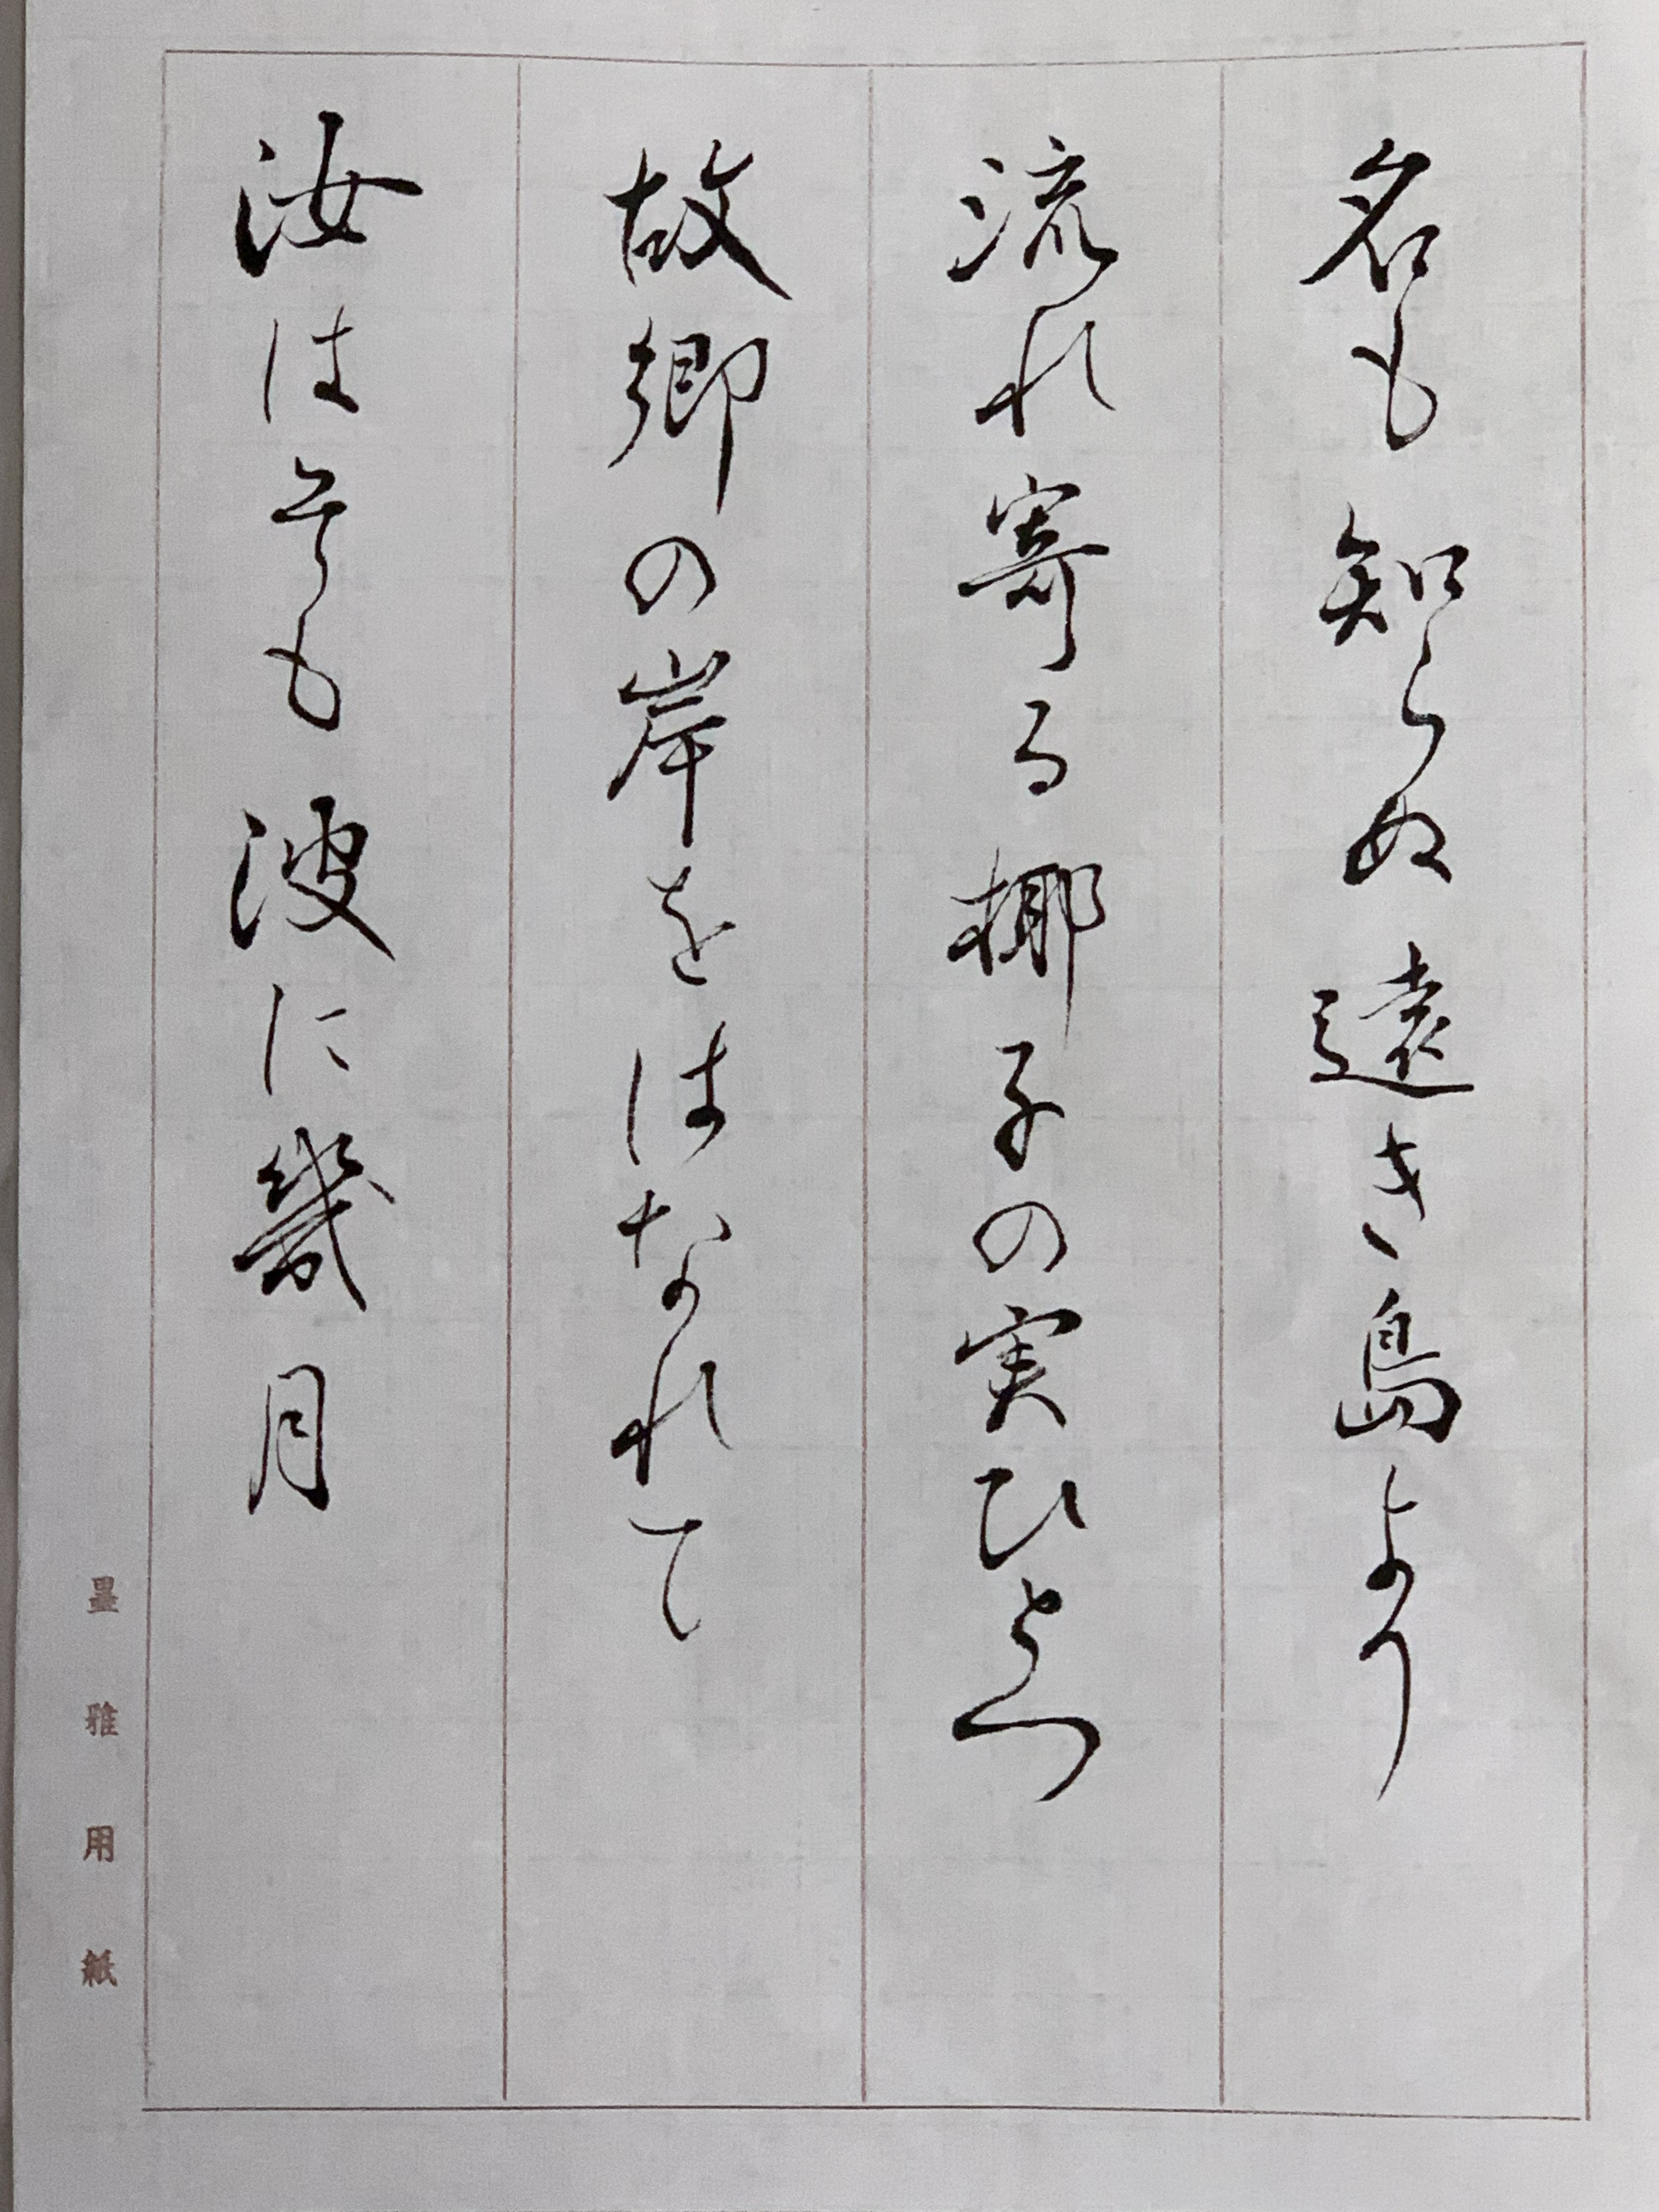 名も知らぬ遠き島より
流れ寄る椰子の実ひとつ
故郷の岸をはなれて
汝はそも波に幾月
墨雅用紙